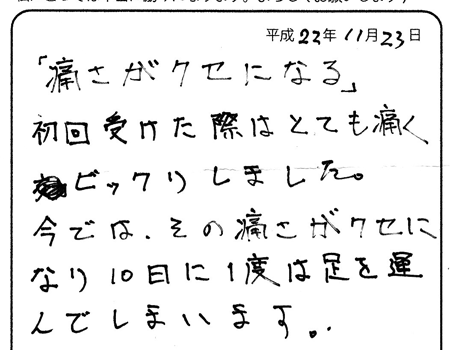 平成22年11月23日
「痛さがクセになる」
初回受けた際はとても痛く
ビックリしました。
今では、その痛さがクセに
なり10日に1度は足を運
んでしまいます。